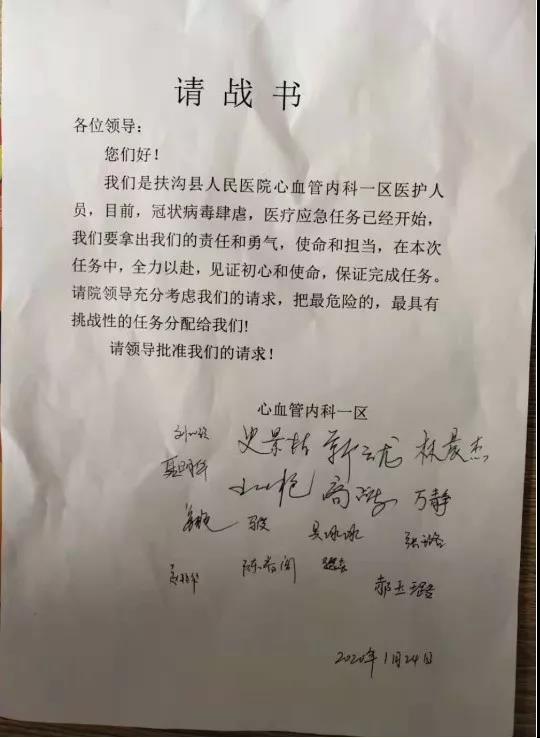 请战书
各位领导：
您们好！
我们是扶沟县人民医院心血管内科一区医护人
员，目前，冠状病毒肆虐，医疗应急任务已经开始，
我们要拿出我们的责任和勇气，使命和担当，在本次
任务中，全力以赴，见证初心和使命，保证完成任务。
请院领导充分考虑我们的请求，把最危险的，最具有
挑战性的任务分配给我们！
请领导批准我们的请求！
心血管内科一区
史景枝 靳云龙 林晨杰
万静
吴冰冰
郝玉璐
2020年1月24日